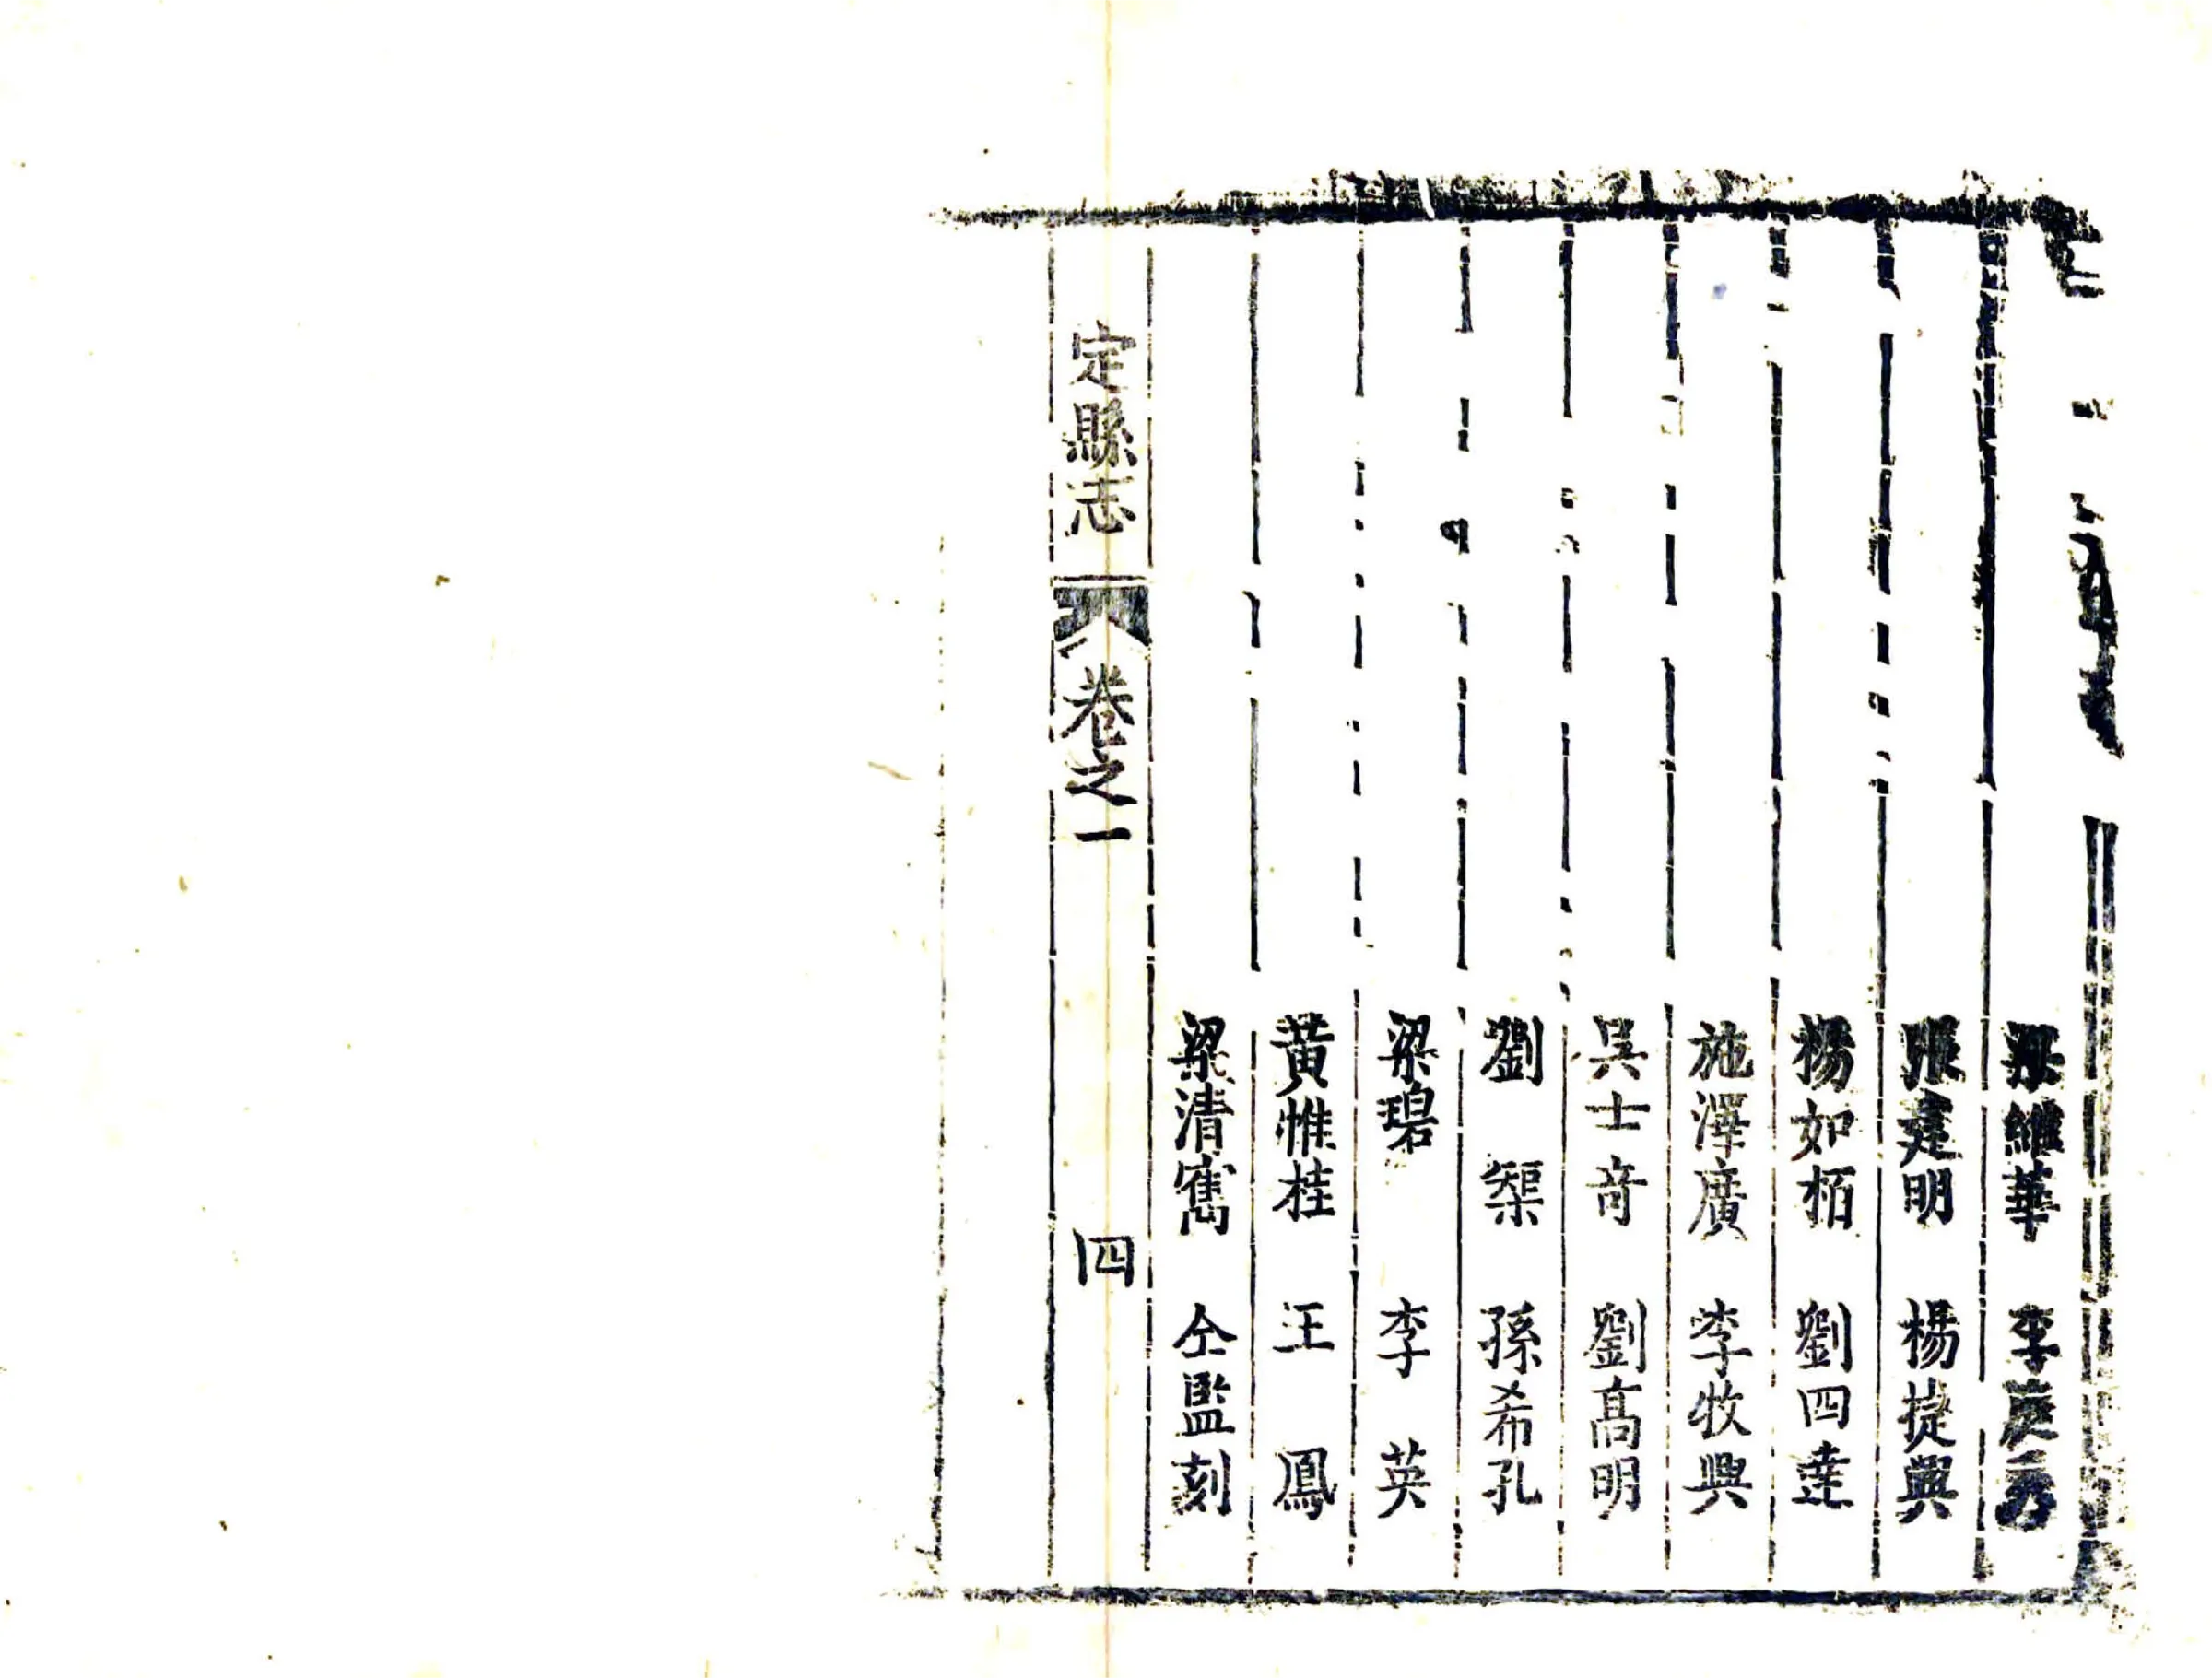 梁維華　李庚秀
張建明　楊捷興
楊如栢　劉四達
施澤廣　李牧興
吴士竒　劉高明
劉　榘　孫希孔
梁碧　李　英
黄惟桂　王　鳳
梁清寯　仝監刻
定縣志　卷之一　四